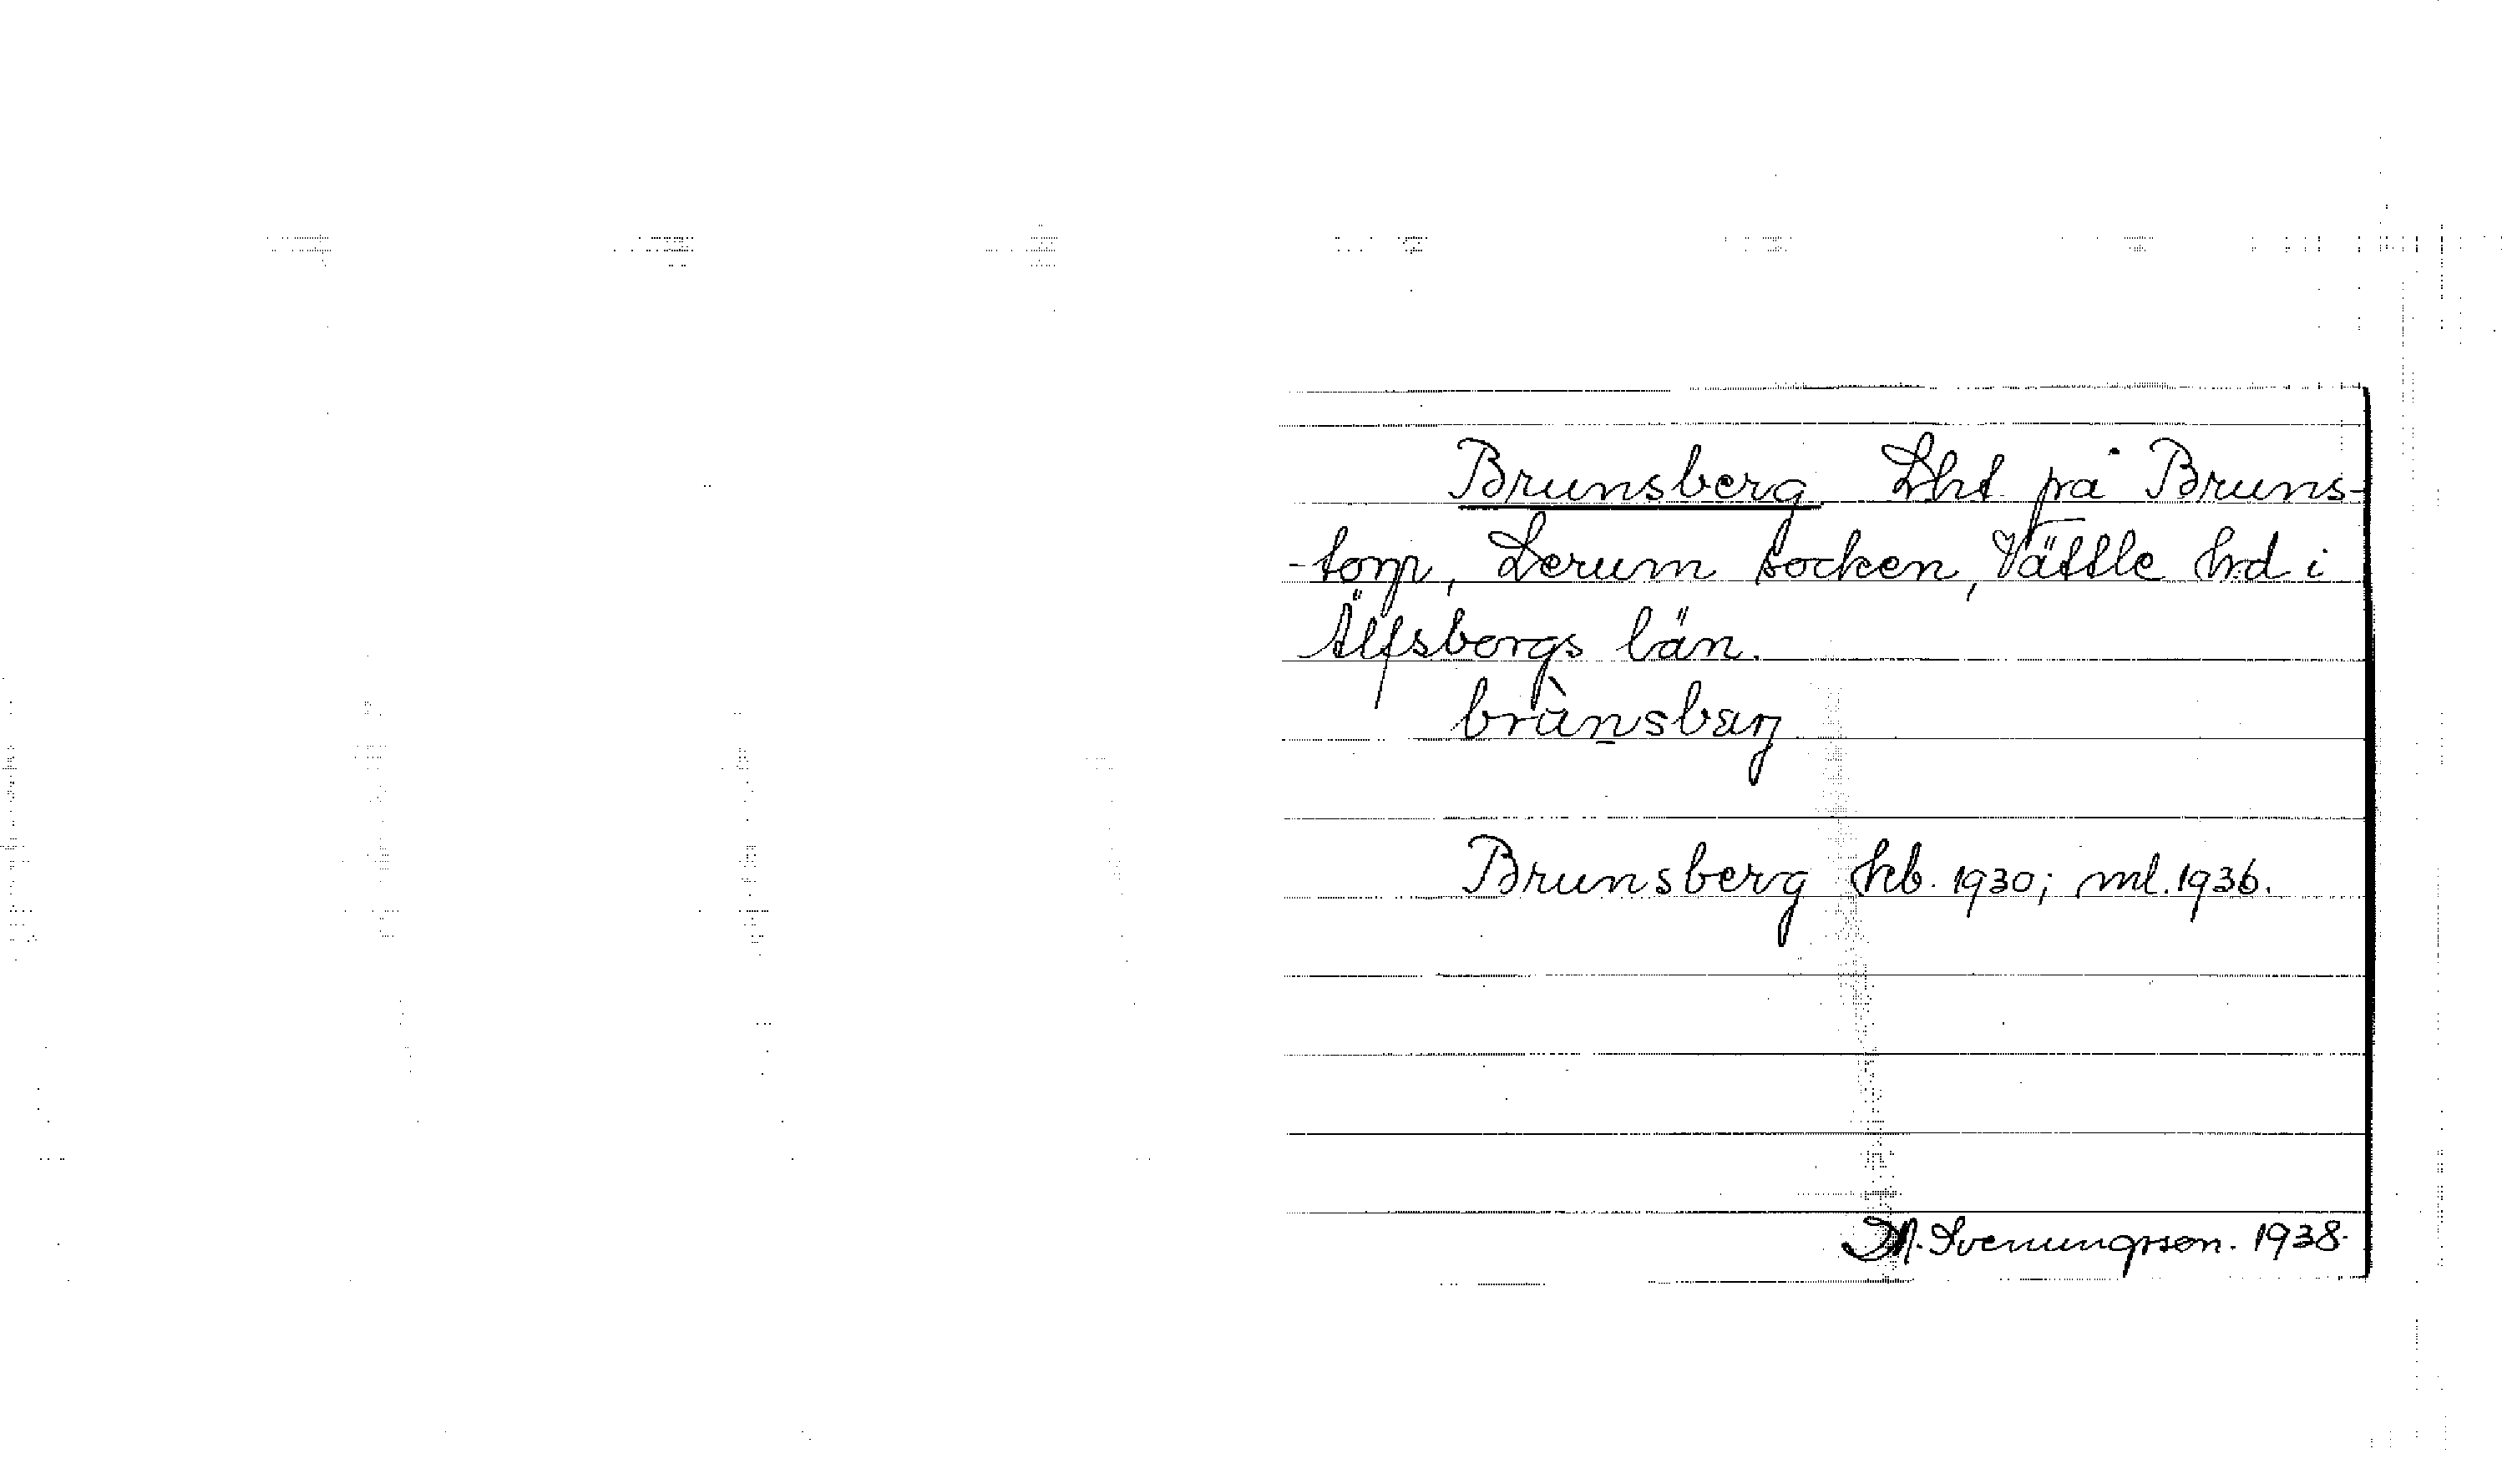 Brunsberg. Lht på Bruns-
-torp, Lerum socken, Vättle hrd i
Älfsborgs län.
brùnsbærj
Brunsberg kb. 1930; ml. 1936.
M. Svenungsson. 1938.